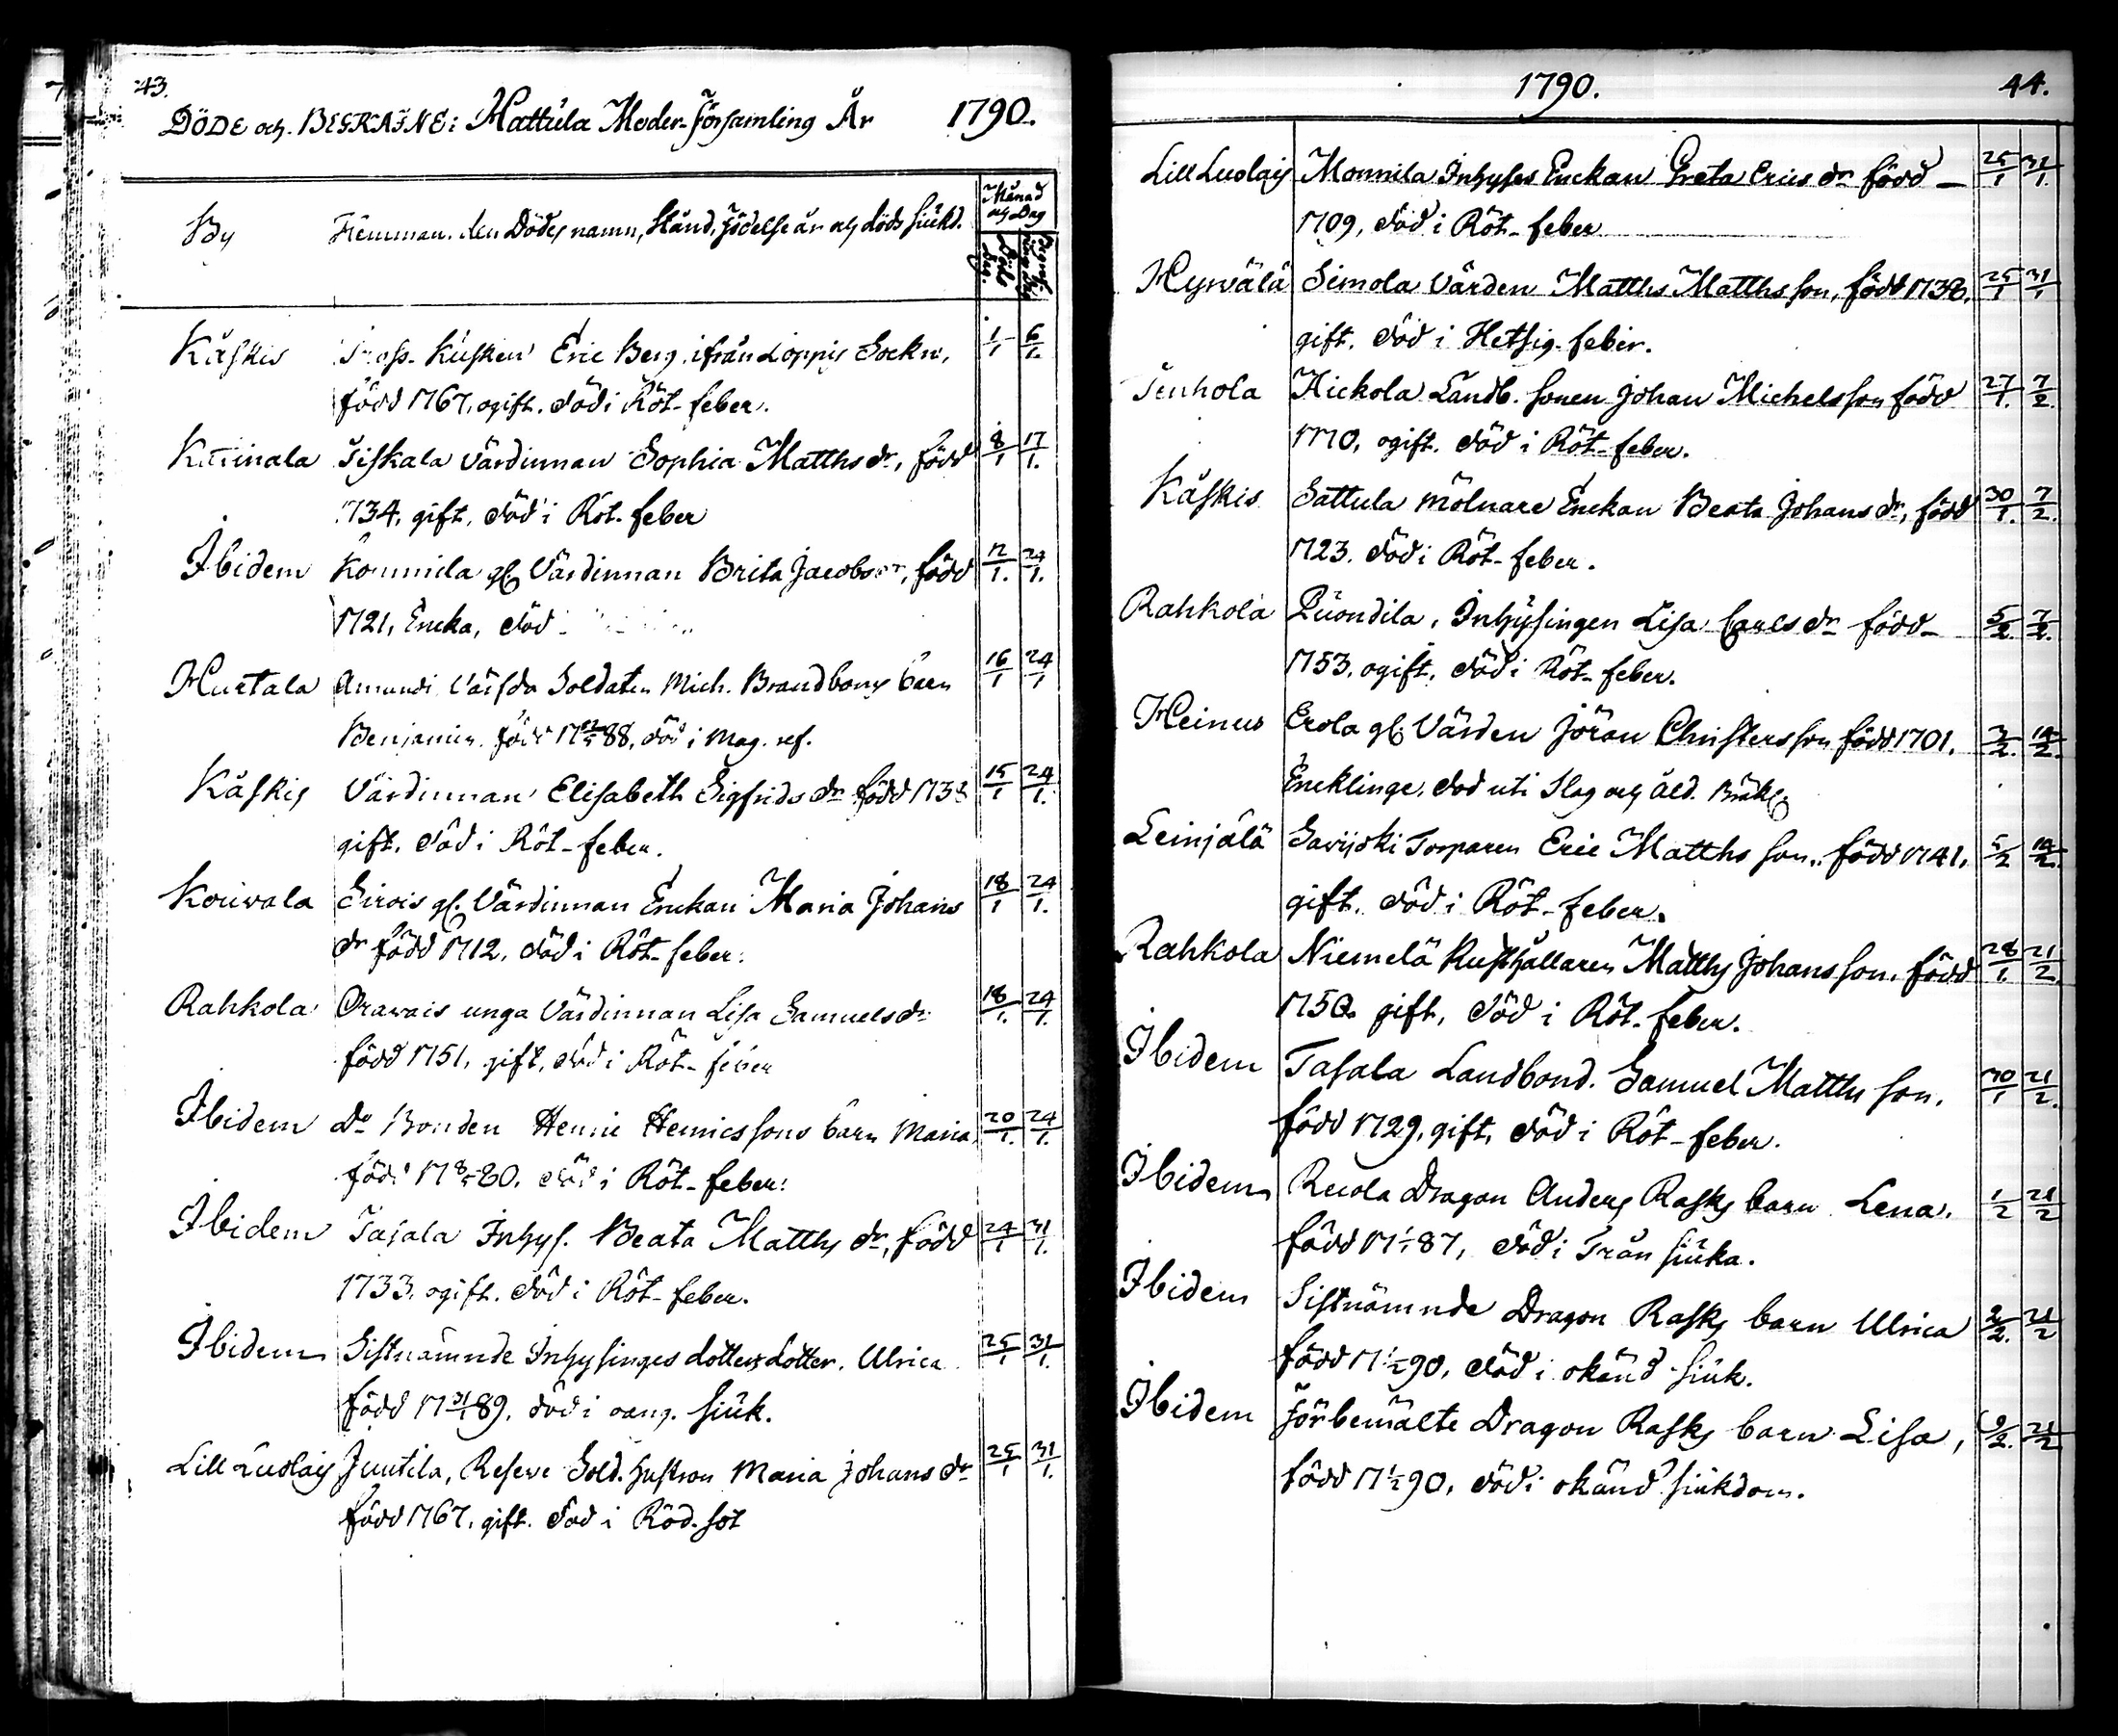 43.
DÖDE och BEGRAFNE: Hattula Moder-Församling År 1790.
By Hemman. den Dödes namn, Stånd, födelse år och döds siukd. Månad och Dag
Döds dag.
Kåskis Tross-Kusken Eric Berg ifrån Loppis Sockn, 1/1 6/1.
född 1767, ogift. död i Röt-feber.
Kattinala Tiskala Värdinnan Sophia Matths dr, född 8/1 17/1.
1734, gift, död i Röt-feber
Ibidem Konnila gl. Värdinnan Brita Jacobs dr, född 12/1. 24/1.
1721, Encka, död
Hurtala Amundi Värfda Soldaten Mich. Brandbergs barn 16/1 24/1
Benjamin. född 17 88, död i Mag. ref.
Kåskis Värdinnan Elisabeth Sigfrids dr född 1738 15/1 24/1.
gift. död i Röt-feber.
Kouvala Sirois gl. Värdinnan Enckan Maria Johans 18/1 24/1.
dr född 1712, död i Röt-feber.
Rahkola Orawais unga Värdinnan Lisa Samuels dr 18/1. 24/1.
född 1751, gift, död i Röt-feber
Ibidem Do Bonden Henric Henricssons barn Maria 20/1. 24/1.
född 17 80. död i Röt-feber.
Ibidem Tasala Inhys. Beata Matths dr, född 24/1 31/1.
1733. ogift. död i Röt-feber.
Ibidem Sistnämnde Inhysinges dotters dotter. Ulrica 25/1 31/1.
född 17 31/1 89. död i oang. siuk.
Lill Luolais Juutila, Reserve Sold. hustron Maria Johans dr 25/1 31/1.
född 1767, gift. död i Röd-sot
1790. 44.
Lill Luolais Monnila Inhyses Enckan Greta Erics dr född 25/1 31/1.
1709, död i Röt-feber
Hyrvälä Simola Värden Matths Matthsson, född 1738. 25/1 31/1
gift. död i Hetsig-feber.
Tenhola Kickola Landb. sonen Johan Michelsson född 27/1. 7/2.
1770, ogift. död i Röt-feber.
Kåskis Sattula Mölnare Enckan Beata Johans dr, född 30/1. 7/2.
1723. död i Röt-feber.
Rahkola Puondila, Inhysingen Lisa Carls dr född 5/2. 7/2.
1753. ogift. död i Röt-feber.
Heinus Erola gl. Värden Jöran Christersson född 1701. 3/2. 14/2.
Encklinge. död uti Slag och åld. Bräkl.
Leinjälä Savijoki Torparen Eric Matthsson, född 1741, 5/2 14/2.
gift. död i Röt-feber.
Rahkola Niemelä Rusthållaren Matths Johansson. född 28/1. 21/2.
1750. gift, död i Röt-feber.
Ibidem Tasala Landbond. Samuel Matthsson. 30/1 21/2.
född 1729, gift, död i Röt-feber.
Ibidem Ruola Dragon Anders Rasks barn Lena. 1/2 21/2
född 17 87, död i Trånsiuka.
Ibidem Sistnämnde Dragon Rasks barn Ulrica 2/2. 21/2
född 17 1/2 90, död i okänd siuk.
Ibidem Förbemälte Dragon Rasks barn Lisa, 9/2. 21/2
född 17 1/2 90, död i okänd siukdom.